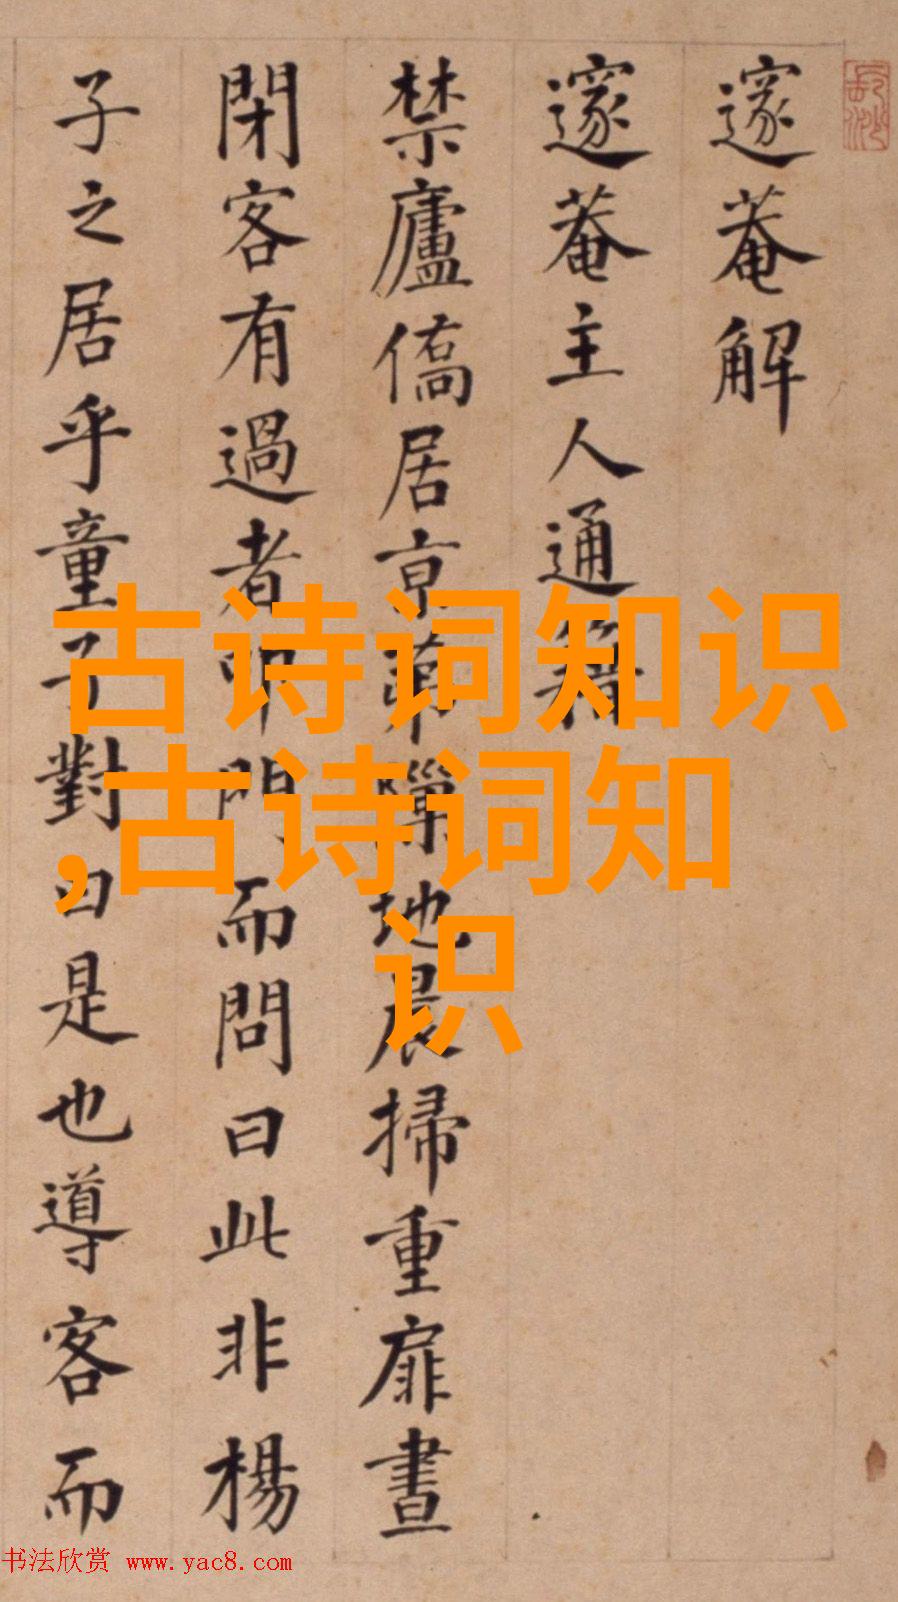 邃菴解
邃菴主人通籍
禁廬僑居京第隟地晨掃重扉晝
閉客有過者叩門而問曰此非楊
子之居乎童子對曰是也導客而
古诗词知识
,古诗词知
识
书法欣赏 www.yac8.com